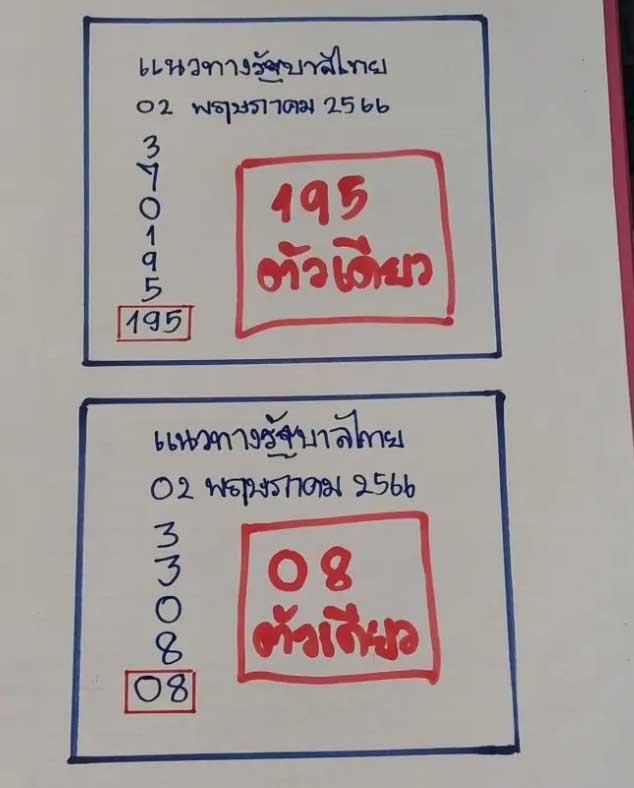 แนวทางรัฐบาลไทย
02 พฤษภาคม 2566
3
7
0
1
9
5
195
195
ตัวเดียว
แนวทางรัฐบาลไทย
02 พฤษภาคม 2566
3
3
0
8
08
08
ตัวเดียว